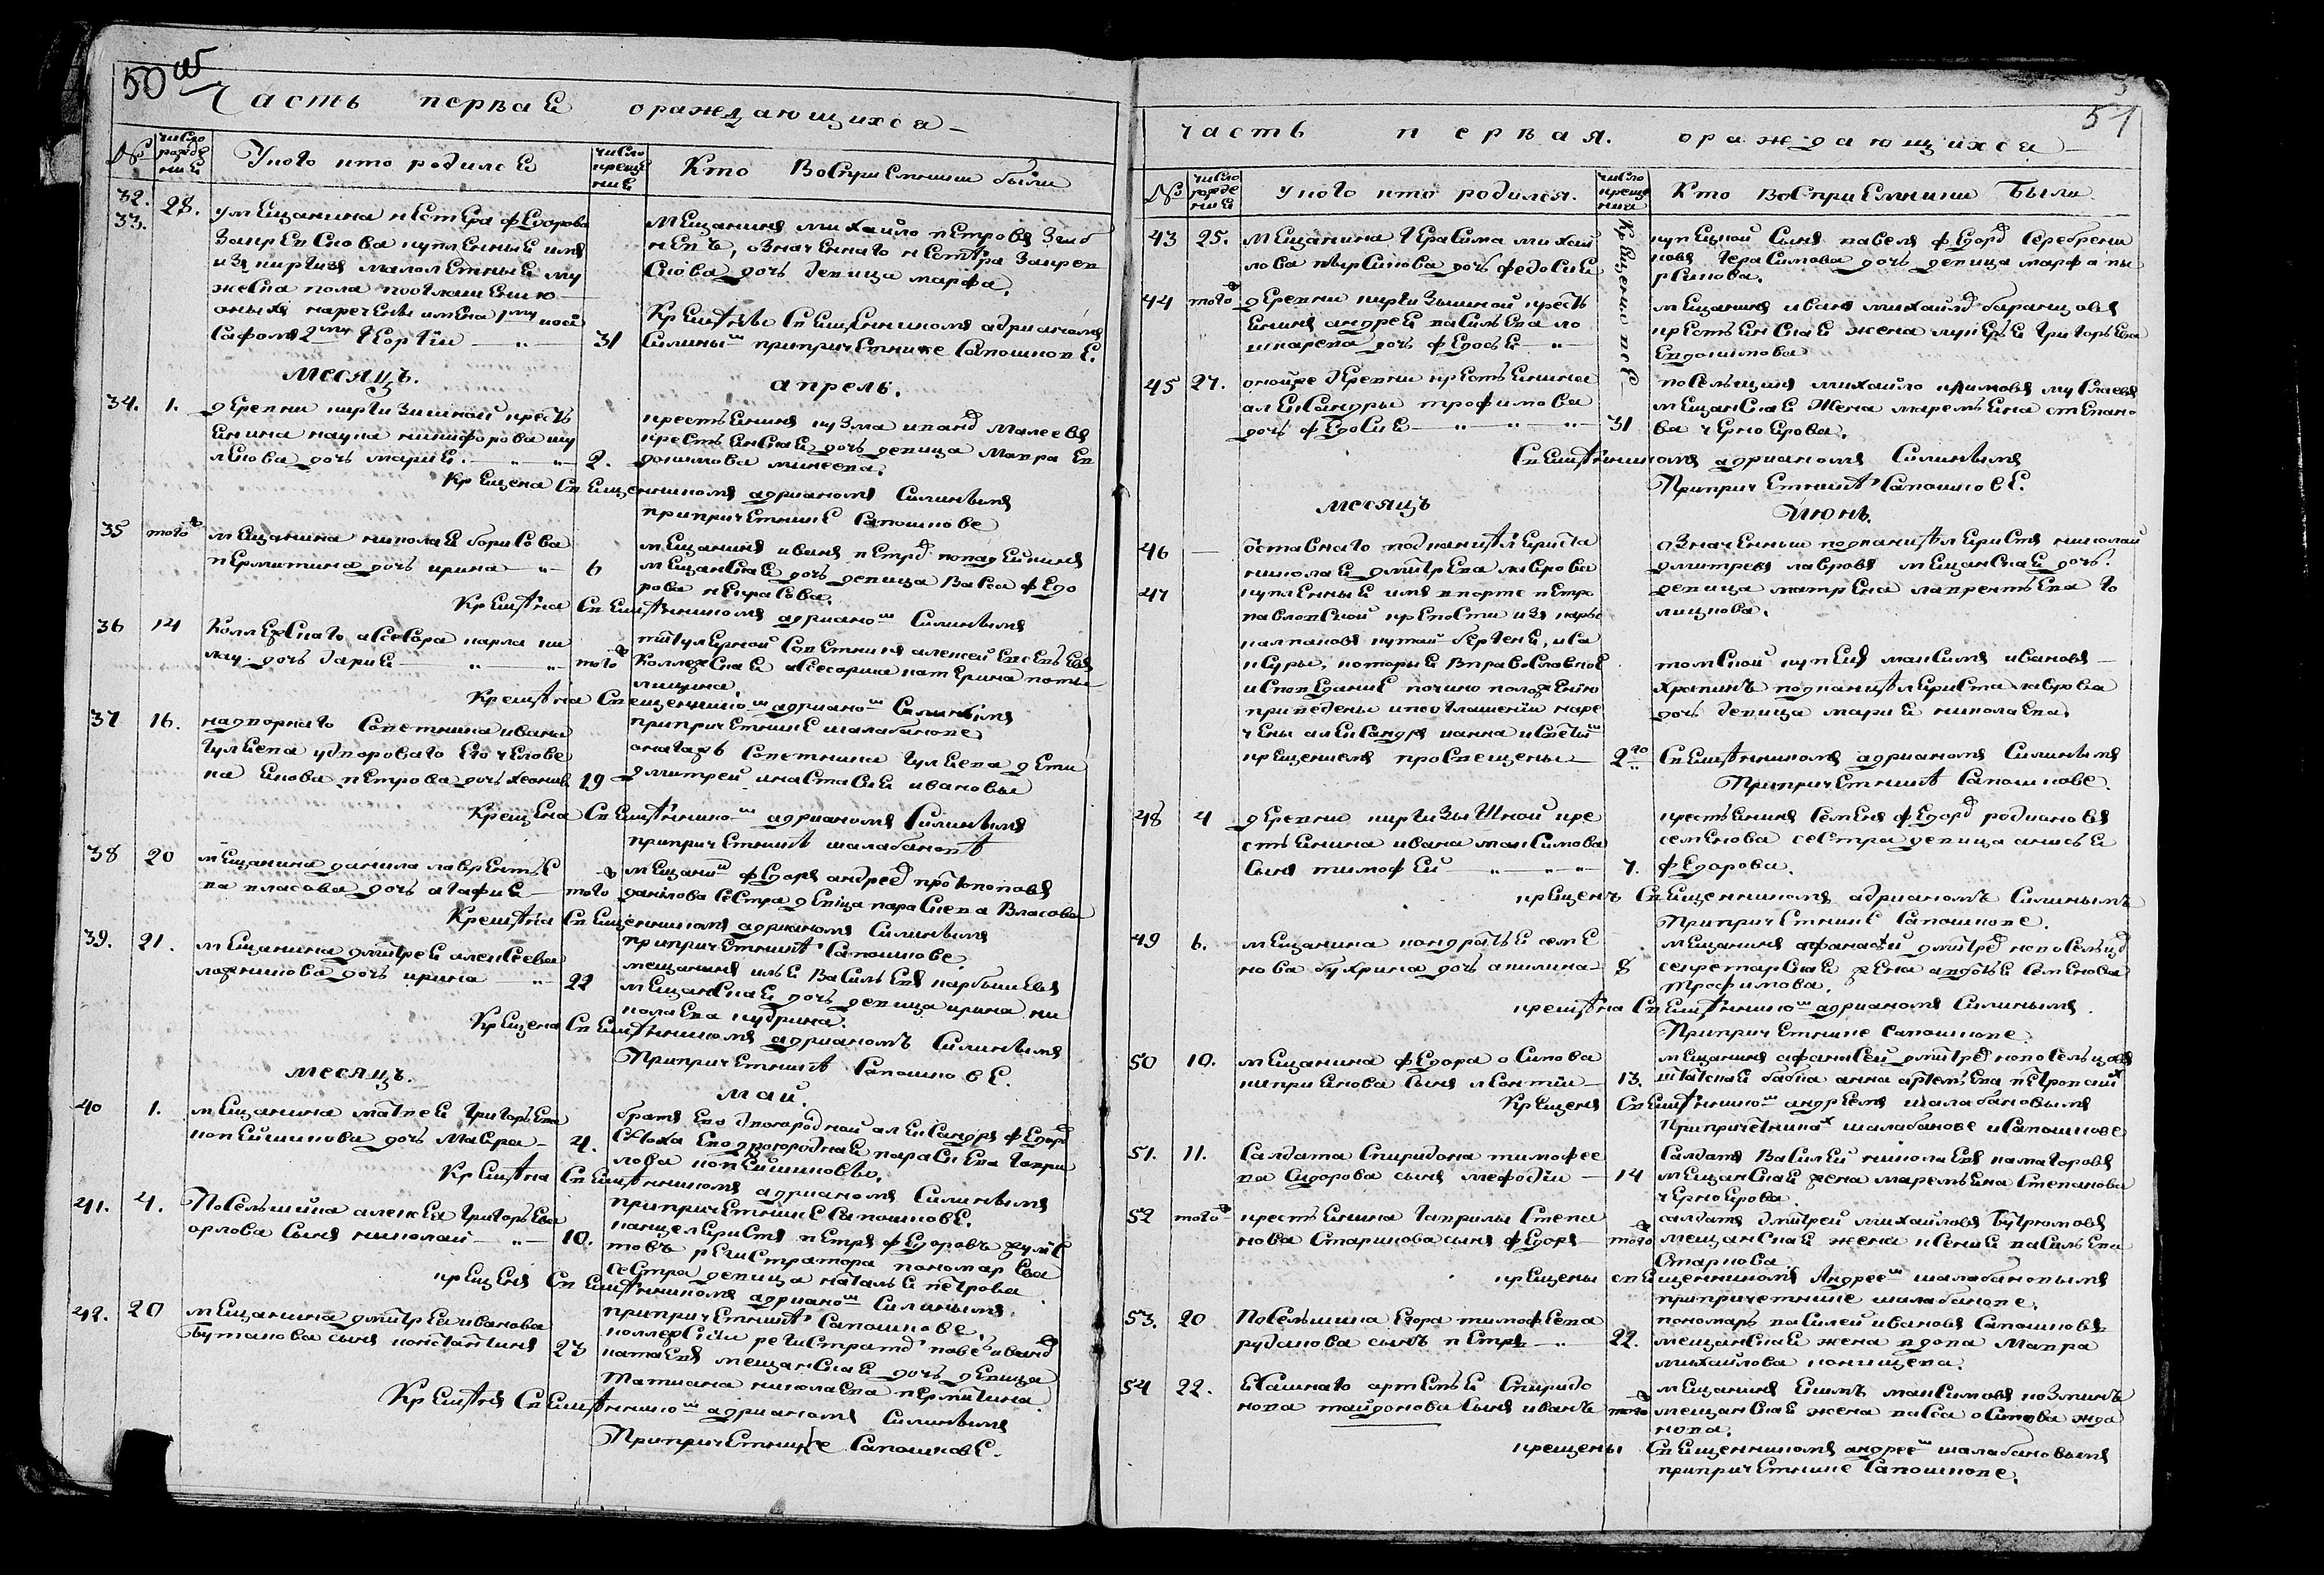 50 об
Часть первая ораждающихса
№
число рожде ния
Укого кто родился
число креще ния
Кто Восприемники были
32.
33. 28. умещанина нестера федорова
Закрепскова купленные имя
изъ киргизъ малолетные му
жеска пола посоглашению
онымъ наречены имена 1му иоа
сафомъ 2му Георгiи 31
мещанинъ михаило петровъ
, означеннаго нестера Закреп
скова дочь девица марфа.
Крещены священникомъ адрианомъ
Силинымъ припричетнике Сапошкове.
месяцъ. апрель.
34. 1. деревни киргизишкой кресть
янина наума никифорова шу
лекова дочь мария 2.
крестьянинъ кузма иванд малеевъ
крестьянская дочь девица мавра ев
докимова минеева.
Крещена священникомъ адрианомъ Силинымъ
припричетнике Сапошкове
35 того мещанина николая борисова
пермитина дочь ирина 6
мещанинъ иванъ петрд
мещанская дочь девица васса федо
рова некрасова.
Крещена священникомъ адрианом Силинымъ
36 14 Коллежскаго асесора карла ки
лау дочь дария того
титулярной советникъ алексей евсевьевъ
коллежская асесорша катерина
Крещена священником адрианом Силинымъ
припричетнике шалабанове
37 16. надворнаго советника ивана
гуляева удвороваго его челове
ка якова петрова дочь хеония 19
онагожъ советника гуляева дети
дмитрей инастасия ивановы
Крещена священником адрианомъ Силинымъ
припричетнике шалабанове
38 20 мещанина данила лаврентье
ва власова дочь агафия того
мещанин федоръ андреd протопоповъ
данилова сестра девица параскева власова
Крещена священникомъ адрианомъ Силинымъ
припричетнике Сапошкове
39. 21. мещанина дмитрея алексеева
ложникова дочь ирина 22
мещанинъ илья васильевъ карбышевъ
мещанская дочь девица ирина ни
колаева кудрина.
Крещена священникомъ адрианомъ Силинымъ
Припричетнике Сапошкове.
месяцъ. май.
40 1. мещанина матвея григорьева
копейшикова дочь мавра 4.
братъ его двоюродной александръ федорд
сноха его двоюродная параскева гаври
лова копейшиковы.
Крещена священникомъ адрианомъ Силинымъ
припричетнике сапошкове.
41. 4. Посельшика алексея григорьева
орлова сынъ николай 10.
канцеляристъ петръ федоровъ
регистратора пономарева
сестра девица наталья петрова
крещенъ священникомъ адриано Силинымъ
припричетнике Сапошкове.
42. 20 мещанина дмитрея иванова
Бутакова сынъ константинъ 23
мещанская дочь девица
татиана николаева пермитина
Крещенъ священником адрианомъ Силинымъ
Припричетнике Сапошкове.
51
часть первая. ораждающихся
№
число рожде ния
укого кто родился.
число креще ния
Кто восприемники были.
43 25. мещанина герасима михай
лова пырсикова дочь федосия
купецкой сынъ павелъ федорd серебрени
ковъ герасимова дочь девица марфа пы
рсикова.
44 того деревни киргизышкой кресть
янина андрея васильева ло
шкарева дочь федосья
мещанинъ иванъ михайлd баранщовъ
крестьянская жена лукерья григорьева
евдокимова
45 27. оноцже деревни крестьянина
александры трофимова
дочь федосия 31
посельщикъ михаило климовъ муслаевъ
мещанская жена маремьяна степано
ва черноярова.
Крещены все
Священникомъ адрианомъ Силинымъ
Припричетнике Сапошкове.
месяцъ Июнь.
46 отставнаго подканцеляриста
николая дмитрева лаврова
означенный подканцеляристъ николай
дмитревъ лавровъ мещанская дочь
девица матрена лаврентьева го
лицкова.
47 купленные имъ вкорте петро
павловской крепости изъ
, иса
нсуры, которыя вправославное
исповедание почино положению
приведены ипосоглашении наре
чены александръ ианна исвятым
крещениемъ просвещены 2го
томской купецъ максимъ ивановъ
храпинъ подканцеляриста лаврова
дочь девица мария николаева.
Священникомъ адрианомъ Силинымъ
Припричетнике Сапошкове.
48 4 деревни киргизышкой кре
стьянина ивана максимова
сынъ тимофей 7.
крестьянинъ семенъ федорd родионовъ
семенова сестра девица анисья
федорова.
крещенъ священникомъ адрианомъ Силинымъ
Припричетнике Сапошкове.
49 6. мещанина кондратья семе
нова бухрина дочь акилина 8
мещанинъ афанасей дмитрd
секретарская жена авдотья семенова
трофимова.
крещена священником адрианомъ Силинымъ.
Припричетнике сапошкове.
50 10. мещанина федора осипова
киприянова сынъ леонтiи 13.
мещанинъ афанасей дмитрd
штатская бабка анна артемьева
Крещенъ священником андреемъ шалабановымъ
Припричетниках шалабанове исапошкове
51. 11. Салдата спиридона тимофее
ва сидорова сынъ мефодiи 14
Салдатъ василей николаевъ каматоровъ
мещанская жена маремьяна степанова
черноярова.
52 того крестьянина гаврилы степа
нова старикова сынъ федоръ того
салдатъ дмитрей михайловъ бутрюмовъ
мещанская жена ксения васильева
старкова.
крещены священникомъ андреем шалабановымъ
припричетнике шалабанове.
53. 20 Посельшика егора тимофеева
рудакова сынъ петръ 22.
пономарь василей ивановъ сапошковъ
мещанская жена вдова мавра
михайлова конищева.
54 22. ясашнаго артемья спиридо
нова тайдонова сынъ иванъ того
мещанинъ екимъ максимовъ козминъ
мещанская жена васса осипова жда
нова.
крещены священникомъ андреем шалабановымъ
припричетнике сапошкове.